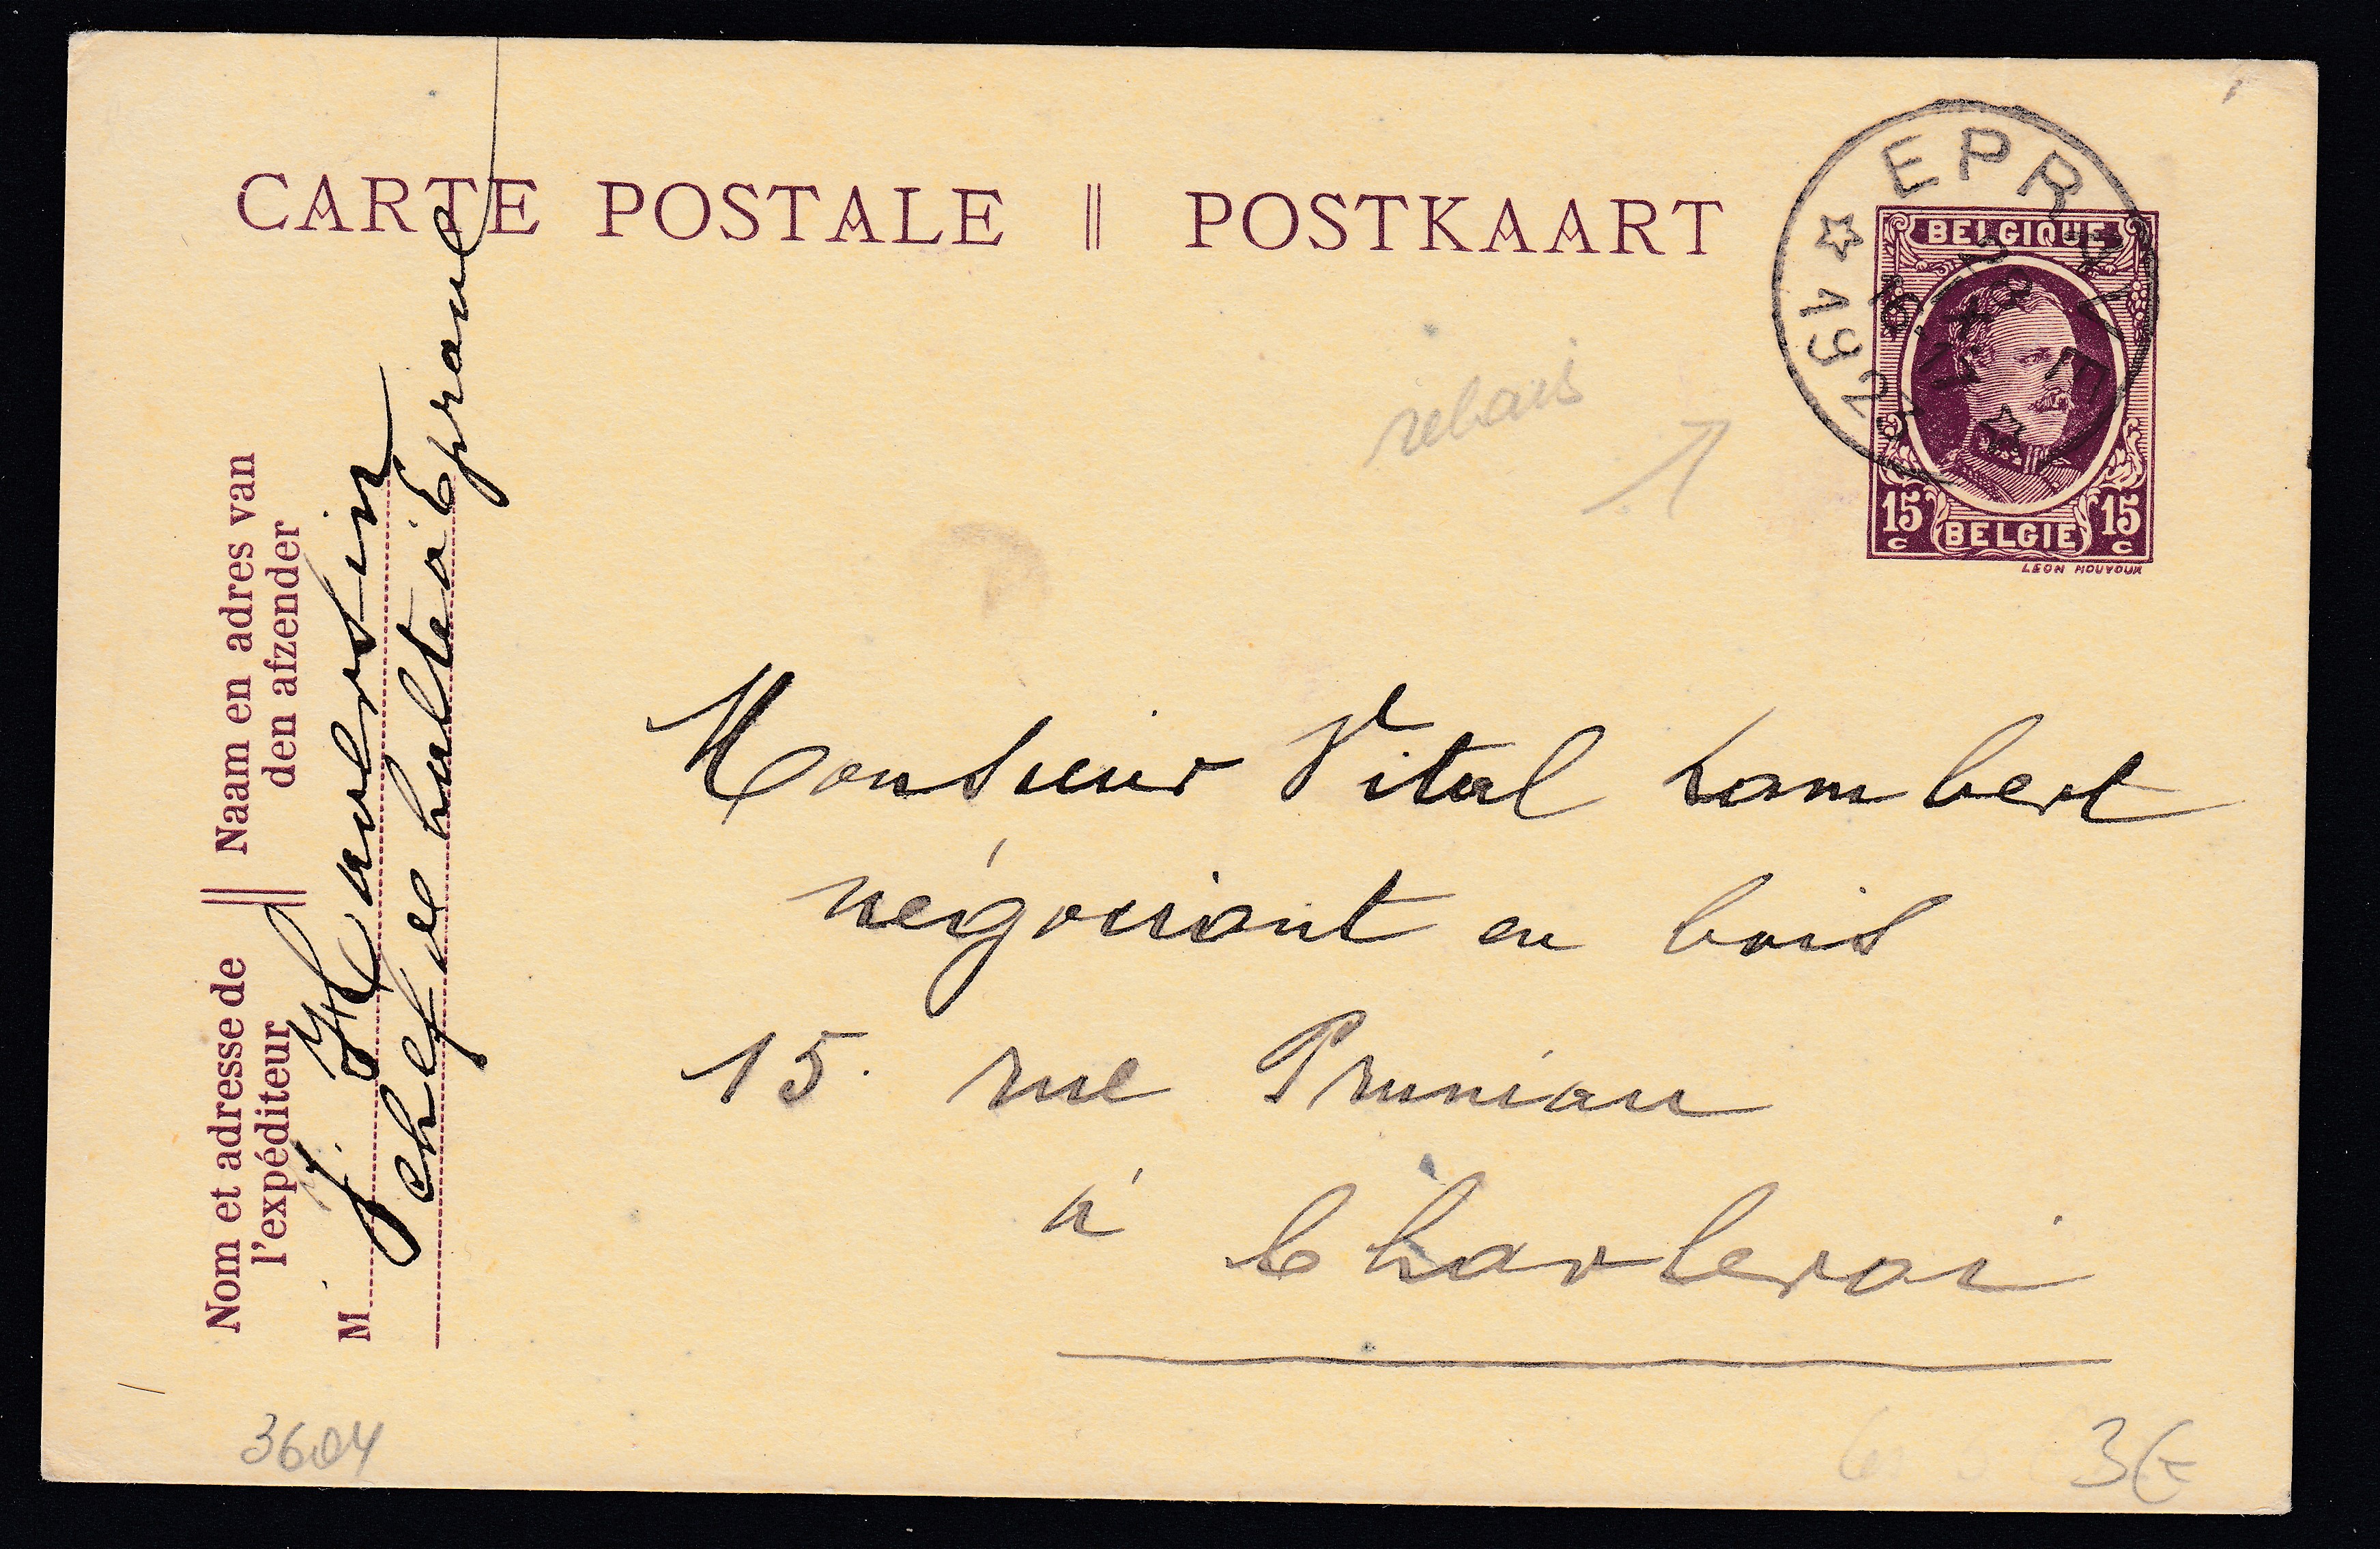 CARTE POSTALE || POSTKAART
EPRAVE
BELGIQUE
15 c BELGIE 15 c
LEON HOUYOUX
relais
Nom et adresse de
l'expéditeur
Naam en adres van
den afzender
M
J. Haversin
chef de halte à Eprave
Monsieur Vital Lambert
négociant en bois
15. rue Pruniau
à Charleroi
3604
3€